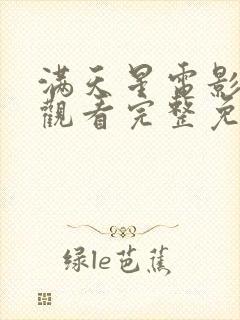 满天星電影
觀看完整免
绿le芭蕉